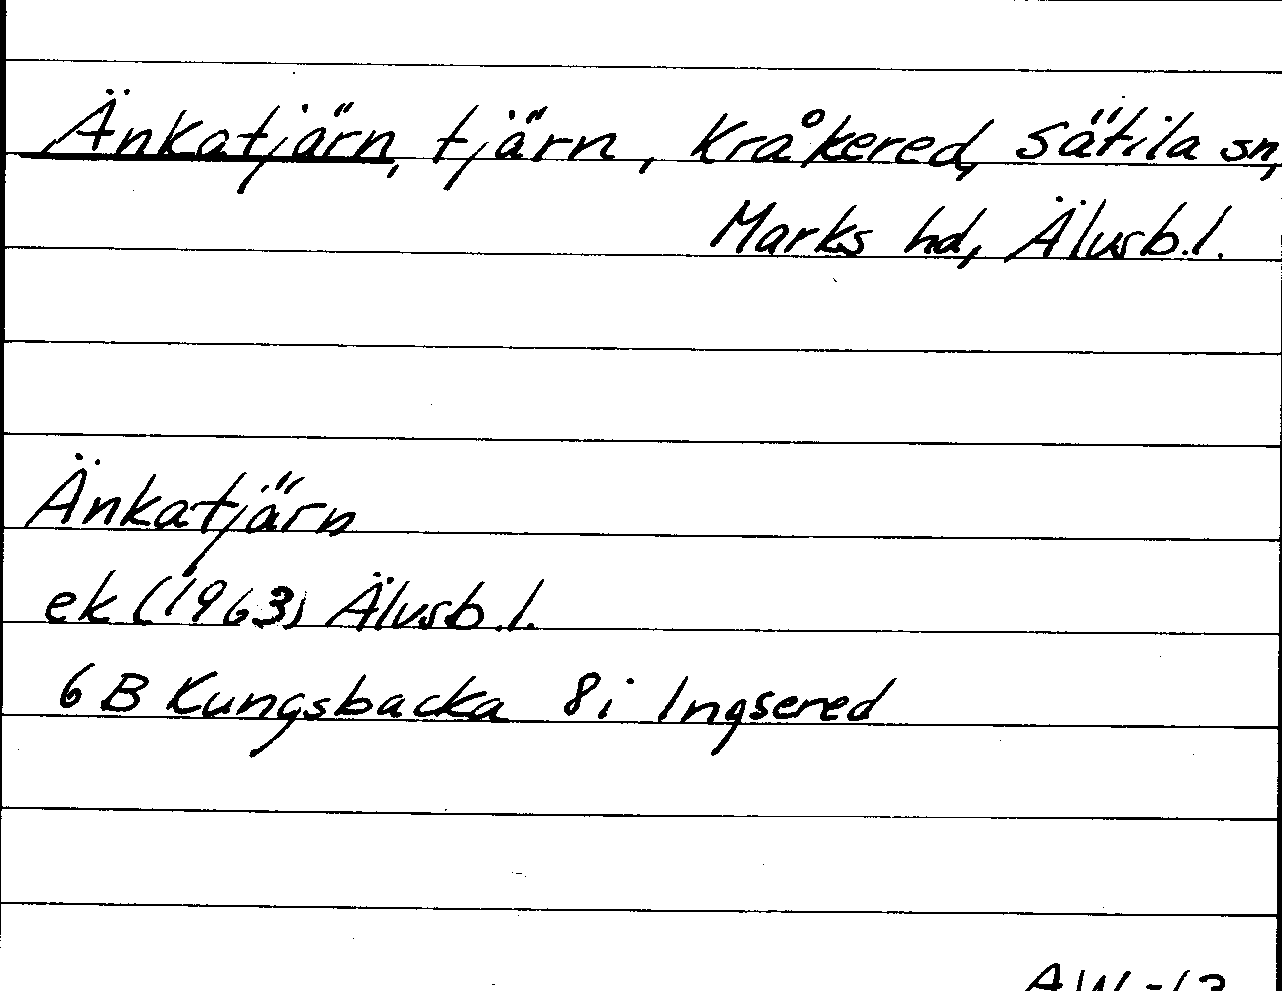 Änkatjärn, tjärn, Kråkered, Sätila sn,
Marks hd, Älvsb.l.
Änkatjärn
ek (1963) Älvsb.l.
6 B Kungsbacka 8i Ingsered